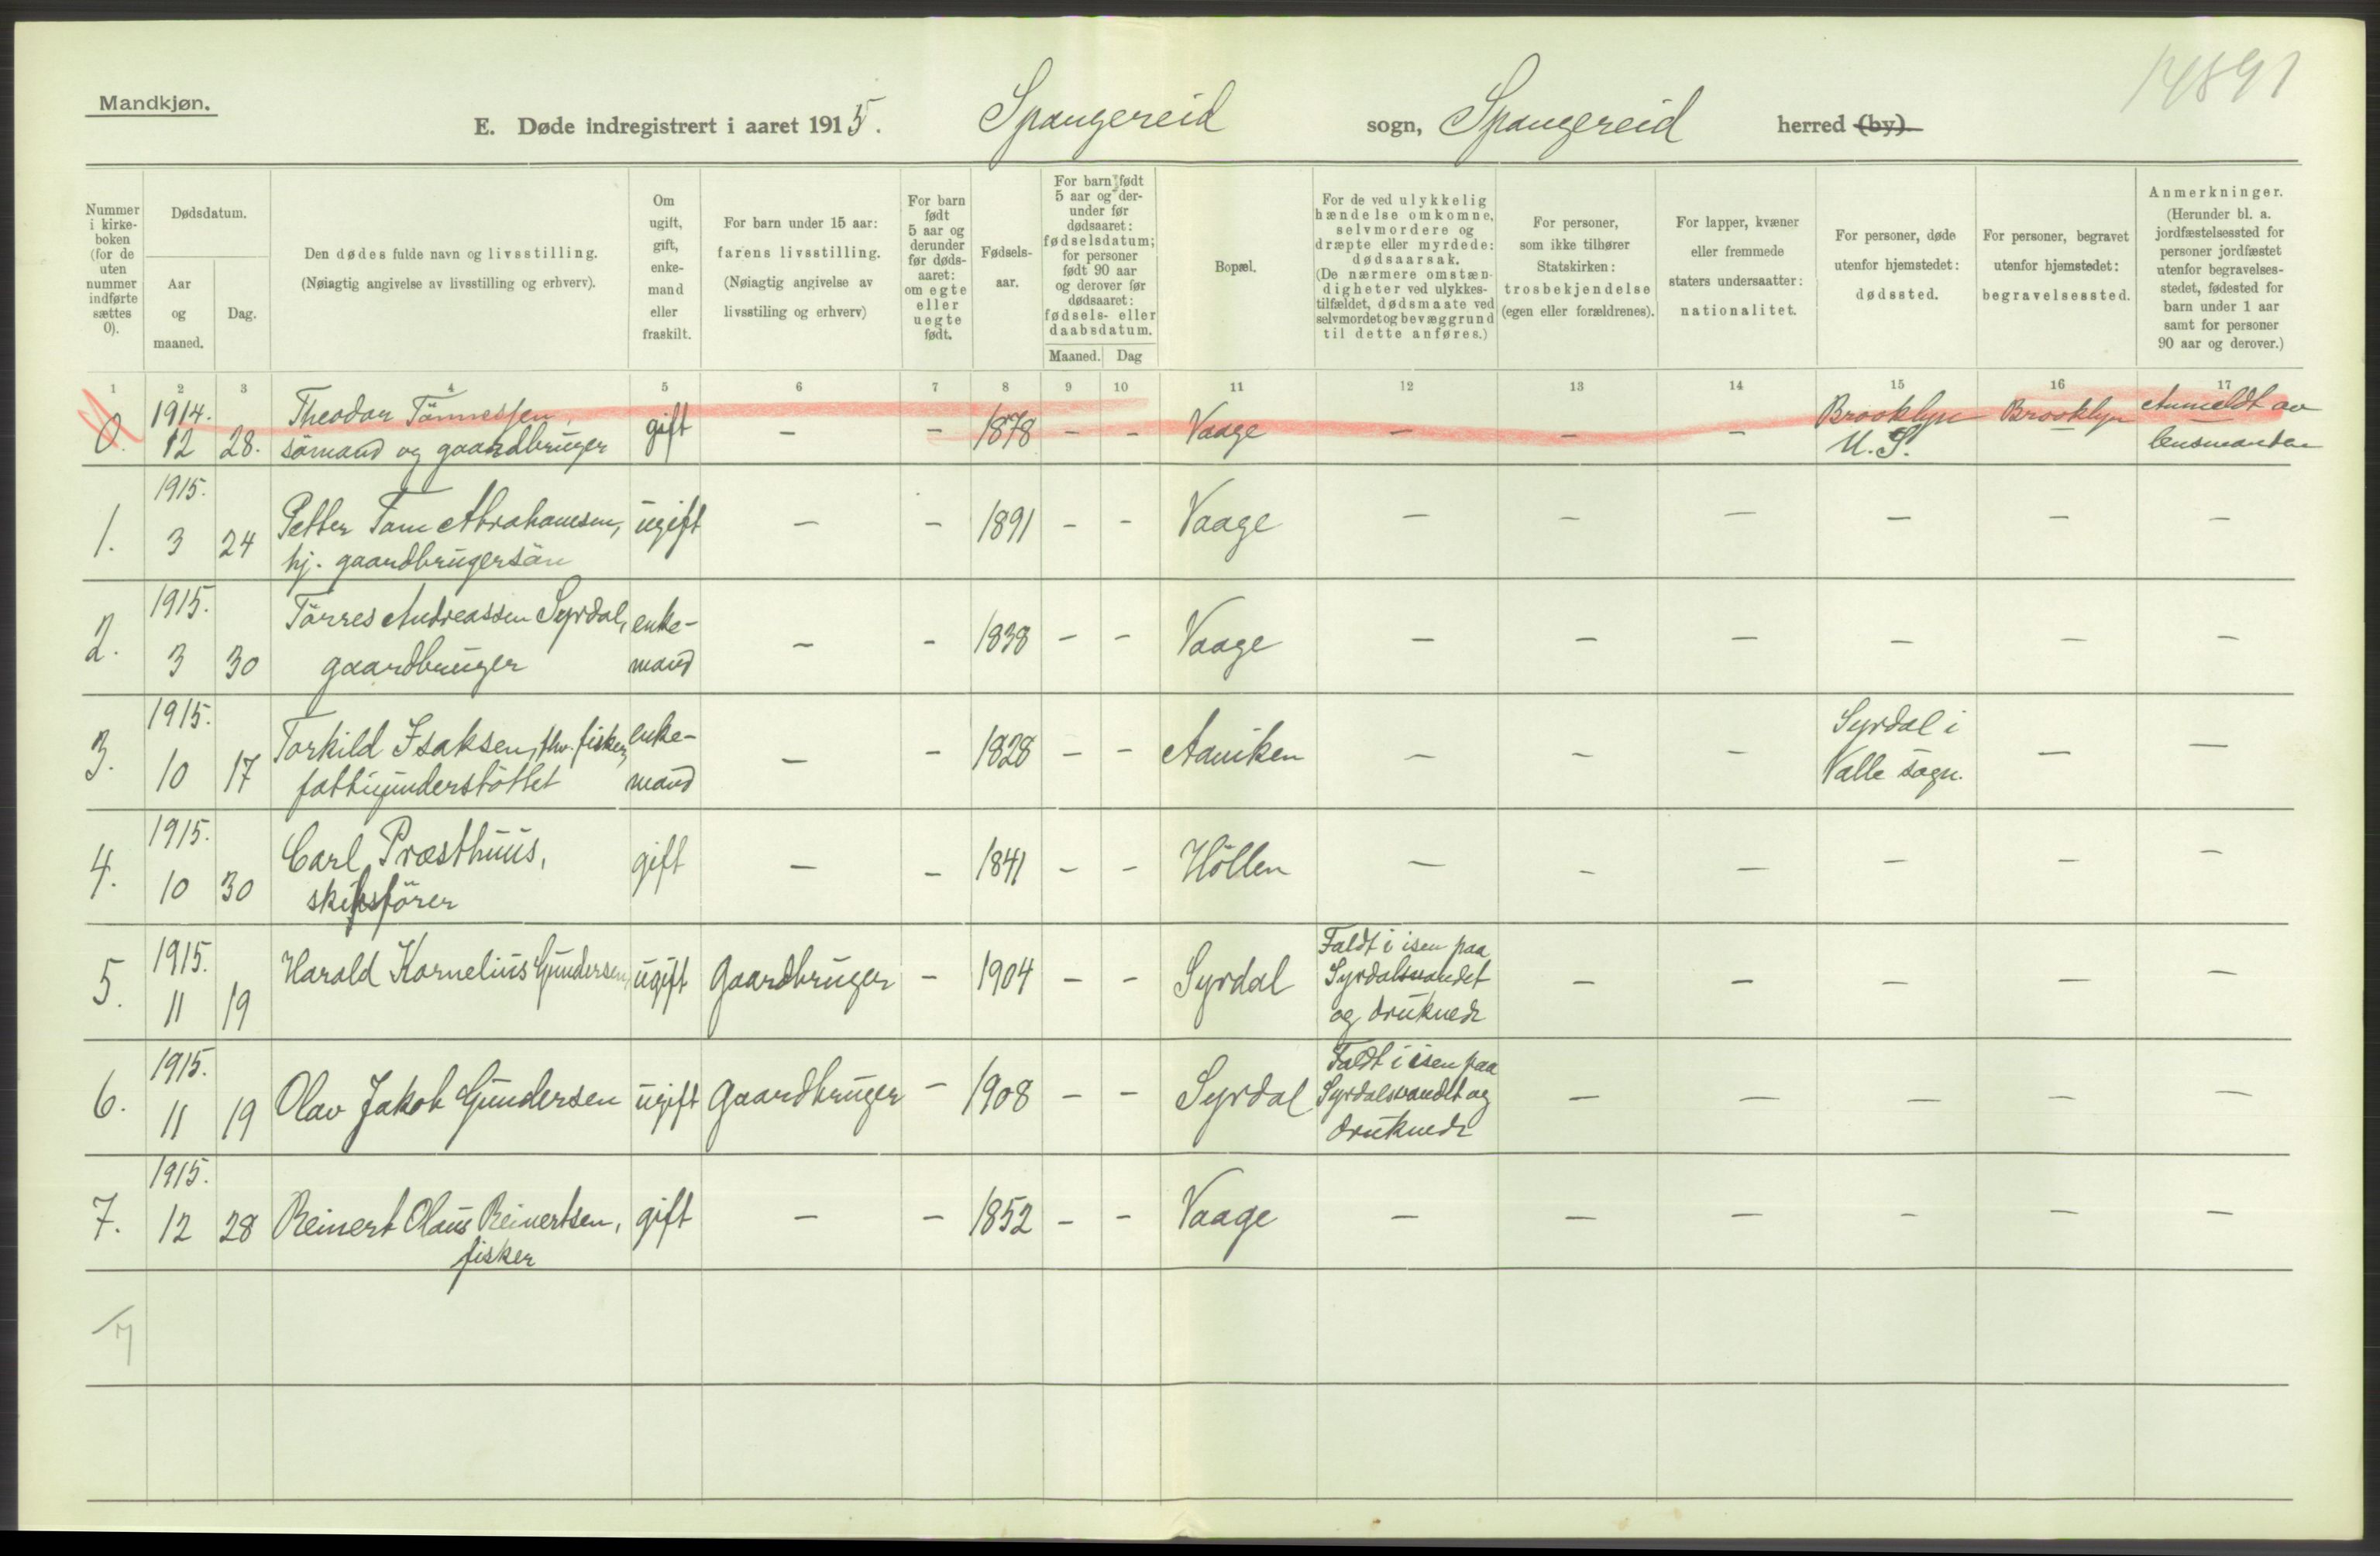 14891
Mandkjøn.
E. Døde indregistrert i aaret 1915. Spangereid sogn, Spangereid herred (by).
Nummer i kirkeboken (for de uten nummer indførte sættes 0).
Dødsdatum.
Aar og maaned.
Dag.
Den dødes fulde navn og livsstilling.
(Nøiagtig angivelse av livsstilling og erhverv).
Om ugift, gift, enkemand eller fraskilt.
For barn under 15 aar: farens livsstilling.
(Nøiagtig angivelse av livsstiling og erhverv)
For barn født 5 aar og derunder før dødsaaret: om egte eller uegte født.
Fødselsaar.
For barn født 5 aar og derunder før dødsaaret: fødselsdatum; for personer født 90 aar og derover før dødsaaret: fødsels- eller daabsdatum.
Maaned. Dag
Bopæl.
For de ved ulykkelig hændelse omkomne, selvmordere og dræpte eller myrdede: dødsaarsak.
(De nærmere omstændigheter ved ulykkestilfældet, dødsmaate ved selvmordet og bevæggrund til dette anføres.)
For personer, som ikke tilhører Statskirken: trosbekjendelse (egen eller forældrenes).
For lapper, kvæner eller fremmede staters undersaatter: nationalitet.
For personer, døde utenfor hjemstedet: dødssted.
For personer, begravet utenfor hjemstedet: begravelsessted.
Anmerkninger.
(Herunder bl. a. jordfæstelsessted for personer jordfæstet utenfor begravelsesstedet, fødested for barn under 1 aar samt for personer 90 aar og derover.)
1 2 3 4 5 6 7 8 9 10 11 12 13 14 15 16 17
0. 1914. 12 28. Theodor Tönnessen, sömand og gaardbruger gift – – 1878 – – Vaage – – – Brooklyn U. S. Brooklyn – Anmeldt av lensmanden
1. 1915. 3 24 Petter Tom Abrahamsen, hj. gaardbrugersön ugift – – 1891 – – Vaage – – – – – –
2. 1915. 3 30 Törres Andreassen Syrdal, gaardbruger enkemand – – 1838 – – Vaage – – – – – –
3. 1915. 10 17 Torkild Isaksen, fhv. fisker, fattigunderstöttet enkemand – – 1828 – – Aaviken – – – Syrdal i Valle sogn. – –
4. 1915. 10 30 Carl Præsthuus, skibsförer gift – – 1841 – – Höllen – – – – – –
5. 1915. 11 19 Harald Kornelius Gundersen, ugift Gaardbruger – 1904 – – Syrdal Faldt i isen paa Syrdalsvandet og druknede – – – – –
6. 1915. 11 19 Olav Jakob Gundersen ugift Gaardbruger – 1908 – – Syrdal Faldt i isen paa Syrdalsvandet og druknede – – – – –
7. 1915. 12 28 Reinert Olaus Reinertsen, fisker gift – – 1852 – – Vaage – – – – – –
/7